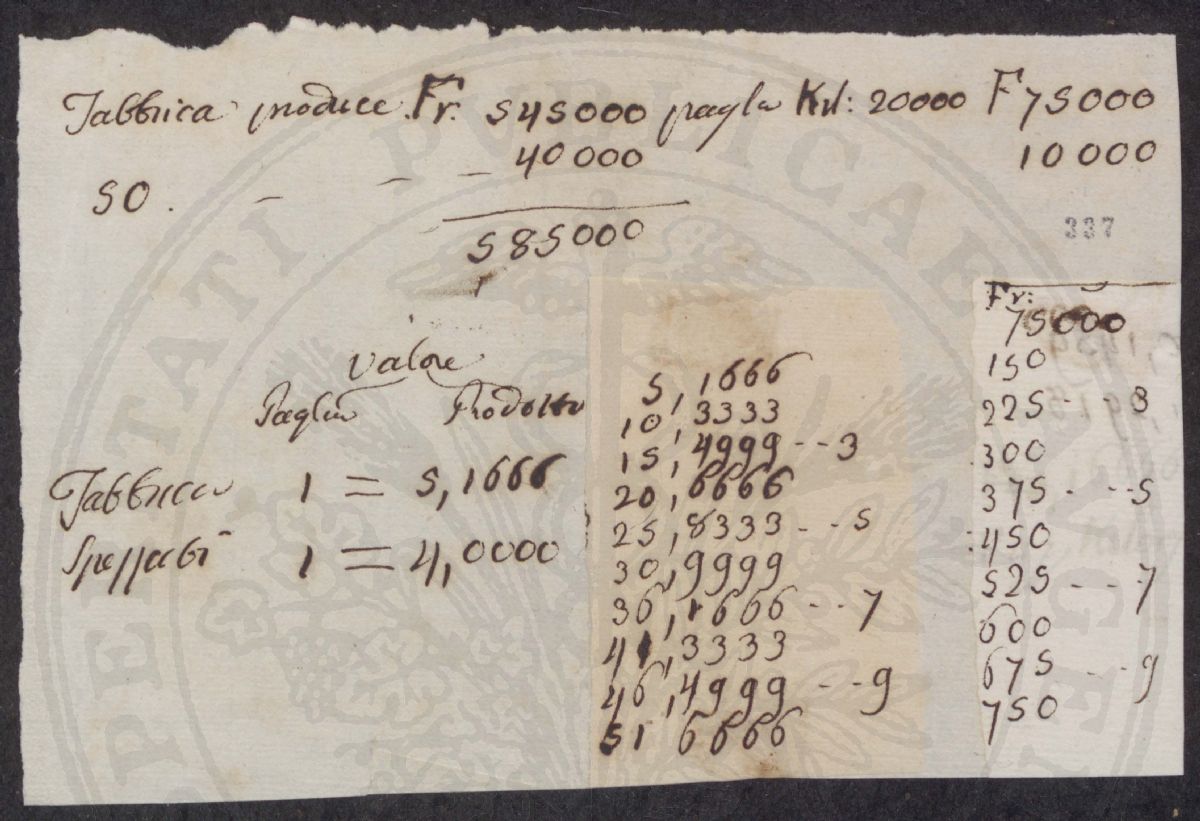 Fabbrica produce Fr: 545000 paglia Kil: 20000 F 75000
50. - - - 40000 10000
585000
337
Valore
Paglia Prodotto
Fabbrica 1 = 5,1666
1 = 4,0000
5,1666
10,3333
15,4999 -- 3
20,6666
25,8333 -- 5
30,9999
36,1666 -- 7
41,3333
46,4999 -- 9
51 6666
Fr:
75000
150
225 -- 3
300
375 -- 5
450
525 -- 7
600
675 -- 9
750